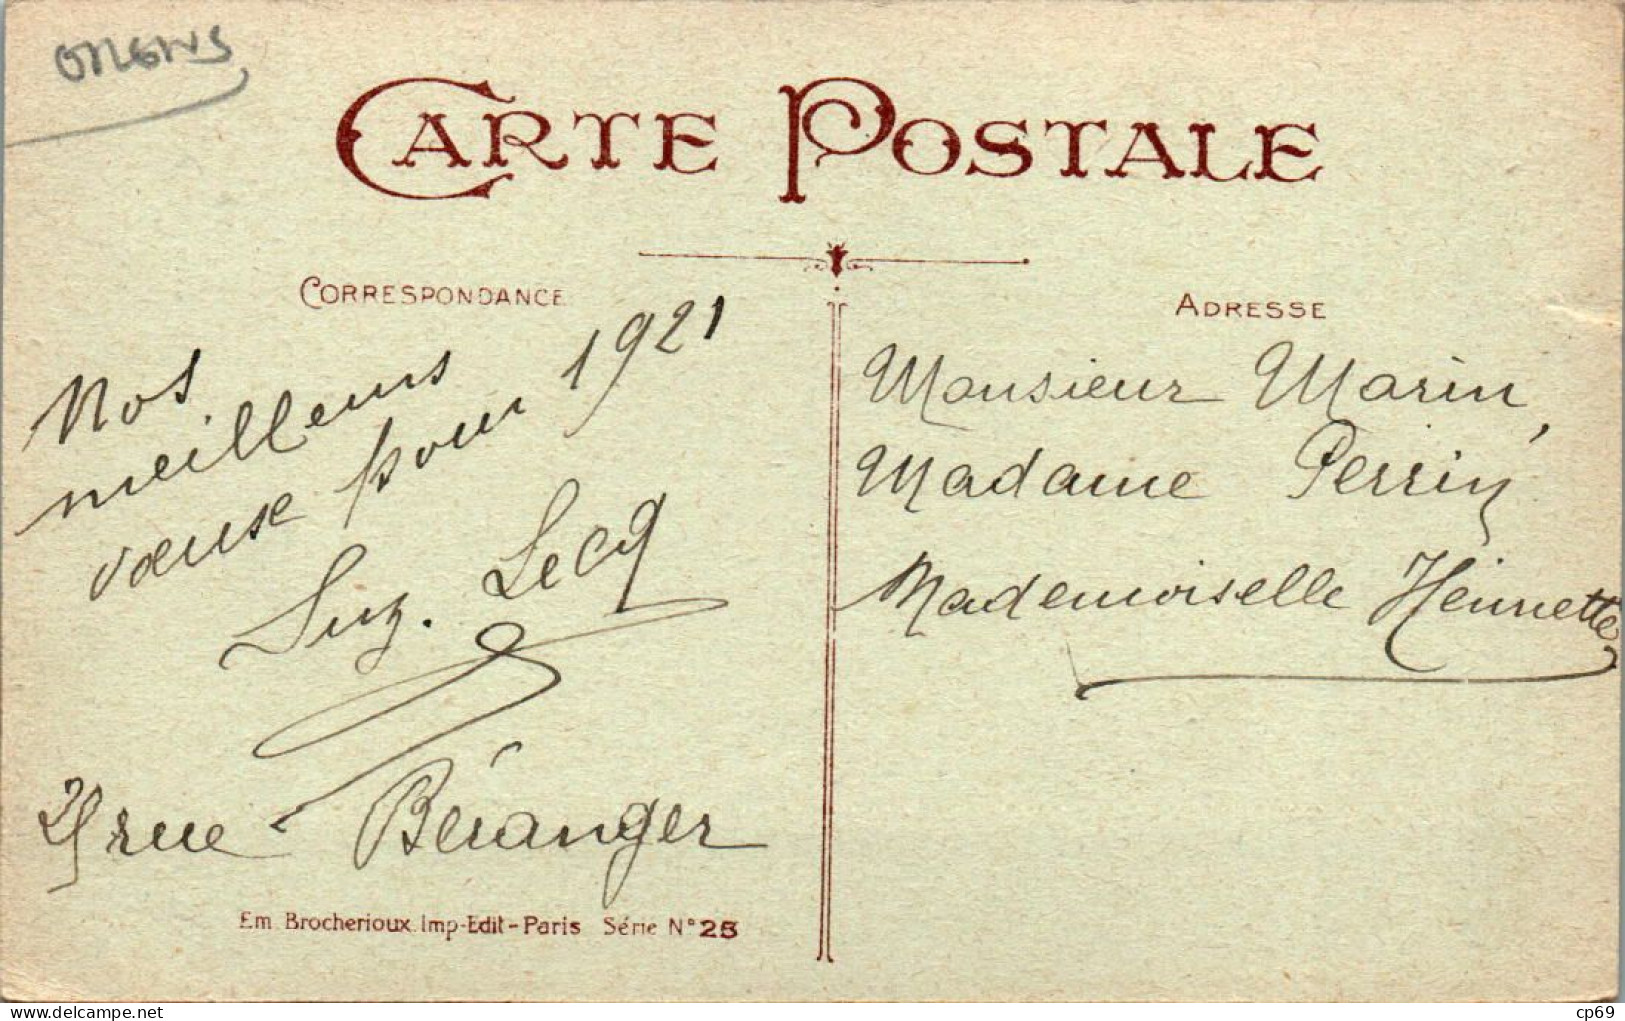 CARTE POSTALE
CORRESPONDANCE
Nos
meilleurs
vœuse pour 1921
Suz. Lecq
25 rue Béranger
Em Brocherioux Imp-Edit-Paris Série N° 25
ADRESSE
Monsieur Marin,
Madame Perrin
Mademoiselle Henriette
www.delcampe.net
cp69